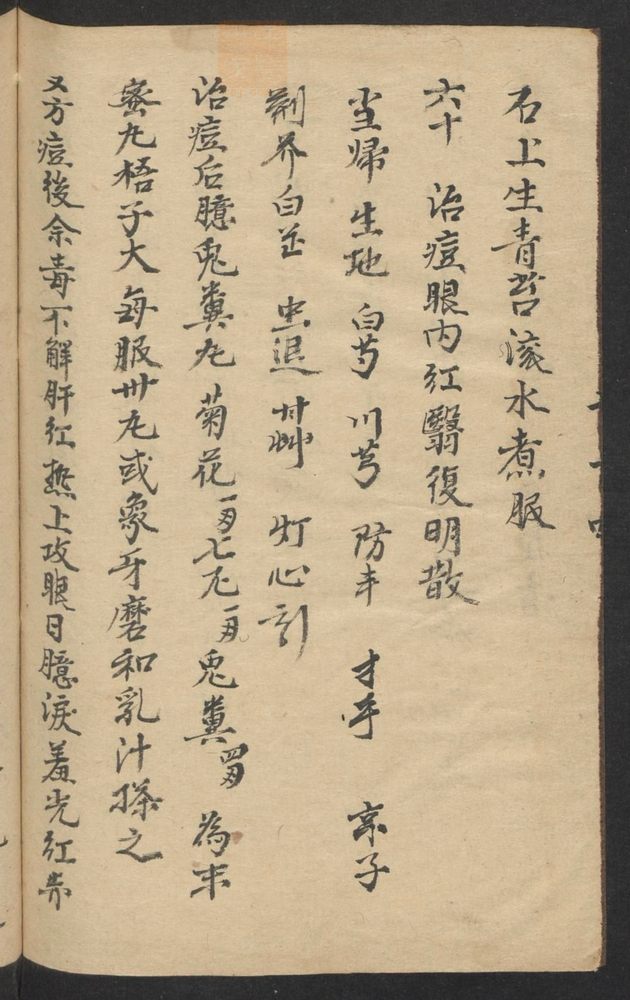 石上生青苔滚水煮服
六十 治痘眼内红翳復明散
当歸 生地 白芍 川芎 防丰 才乎 京子
荆芥 白芷 虫退 甘艸 灯心引
治痘后臆兎糞丸 菊花 七 兎糞 為末
蜜丸梧子大每服卅丸或象牙磨和乳汁搽之
又方痘後余毒不解肝红热上攻眼日臆淚羞光红赤